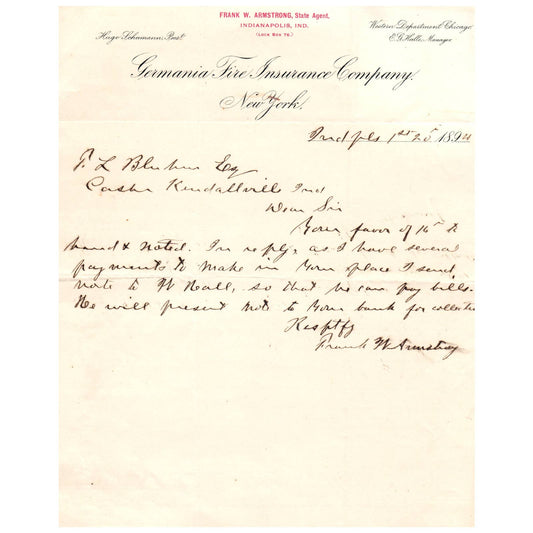 FRANK W. ARMSTRONG, State Agent.
INDIANAPOLIS, IND.
(LOCK BOX 76.)
Hugo Schumann, Prest.
Western Department Chicago
E.G. Halle, Manager
Germania Fire Insurance Company
New York.
Indpls 1st 25 189
F. L. Esq
Cashr Kendallville Ind
Dear Sir
Your favor of 16" to
hand & Noted. In reply, as I have several
payments to make in Your place I send
note to W Hall, so that he can pay bills.
He will present note to Your bank for collection
Respttfy
Frank W Armstrong